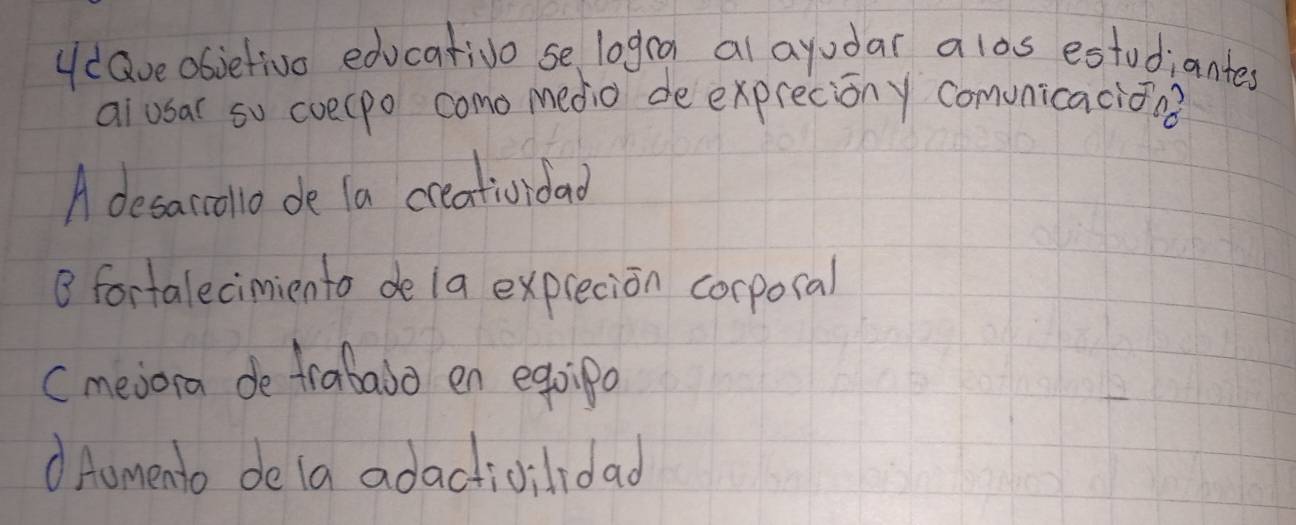 4¿Que objetivo educativo se logra al ayudar a los estudiantes
al usar su cuerpo como medio de expreción y comunicación?
A desarrollo de la creatividad
B fortalecimiento de la expreción corporal
C mejora de trabajo en equipo
d Aumento de la adactivilidad